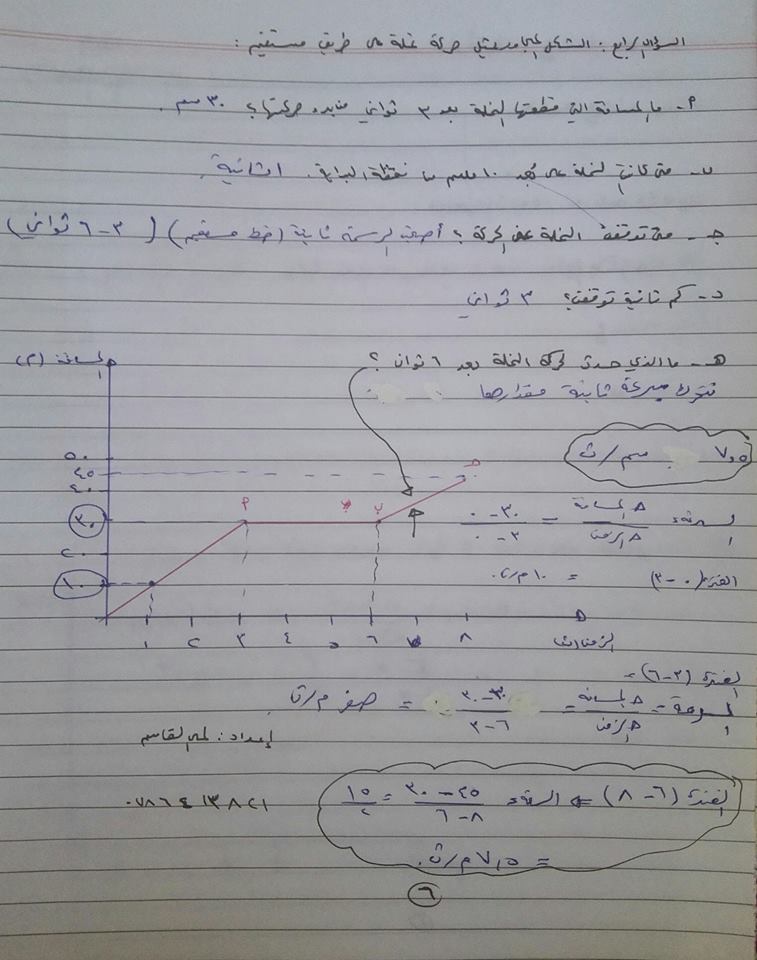 السؤال الرابع: الشكل المجاور يمثل حركة نملة على طريق مستقيم:
٢- ما المسافة التي قطعتها النملة بعد ٣ ثواني من بدء حركتها؟ ٣٠ سم.
ب- متى كانت النملة على بُعد ١٠ سم من نقطة البداية. ١ ثانية.
جـ- متى توقفت النملة عن الحركة؟ أصبحت الرسمة ثابتة (خط مستقيم) (٣-٦ ثواني)
د- كم ثانية توقفت؟ ٣ ثواني
هـ- ما الذي حدث لحركة النملة بعد ٦ ثوان؟
تتحرك بسرعة ثابتة مقدارها
٧,٥ سم/ث
المسافة (م)
٥٠
٤٥
٤٠
٣٠
٢٠
١٠
١ ٢ ٣ ٤ ٥ ٦ ٧ ٨
الزمن (ث)
P ب جـ د
السرعة = Δ المسافة / Δ الزمن = ٣٠-٠ / ٣-٠
الفترة (٠-٣) = ١٠ م/ث.
الفترة (٣-٦) =
السرعة = Δ المسافة / Δ الزمن = ٣٠-٣٠ / ٦-٣ = صفر م/ث
إعداد: لمى القاسم
٠٧٨٦٤١٣٨٢١
الفترة (٦-٨) ⇐ السرعة = ٤٥-٣٠ / ٨-٦ = ١٥ / ٢
= ٧,٥ م/ث.
٦